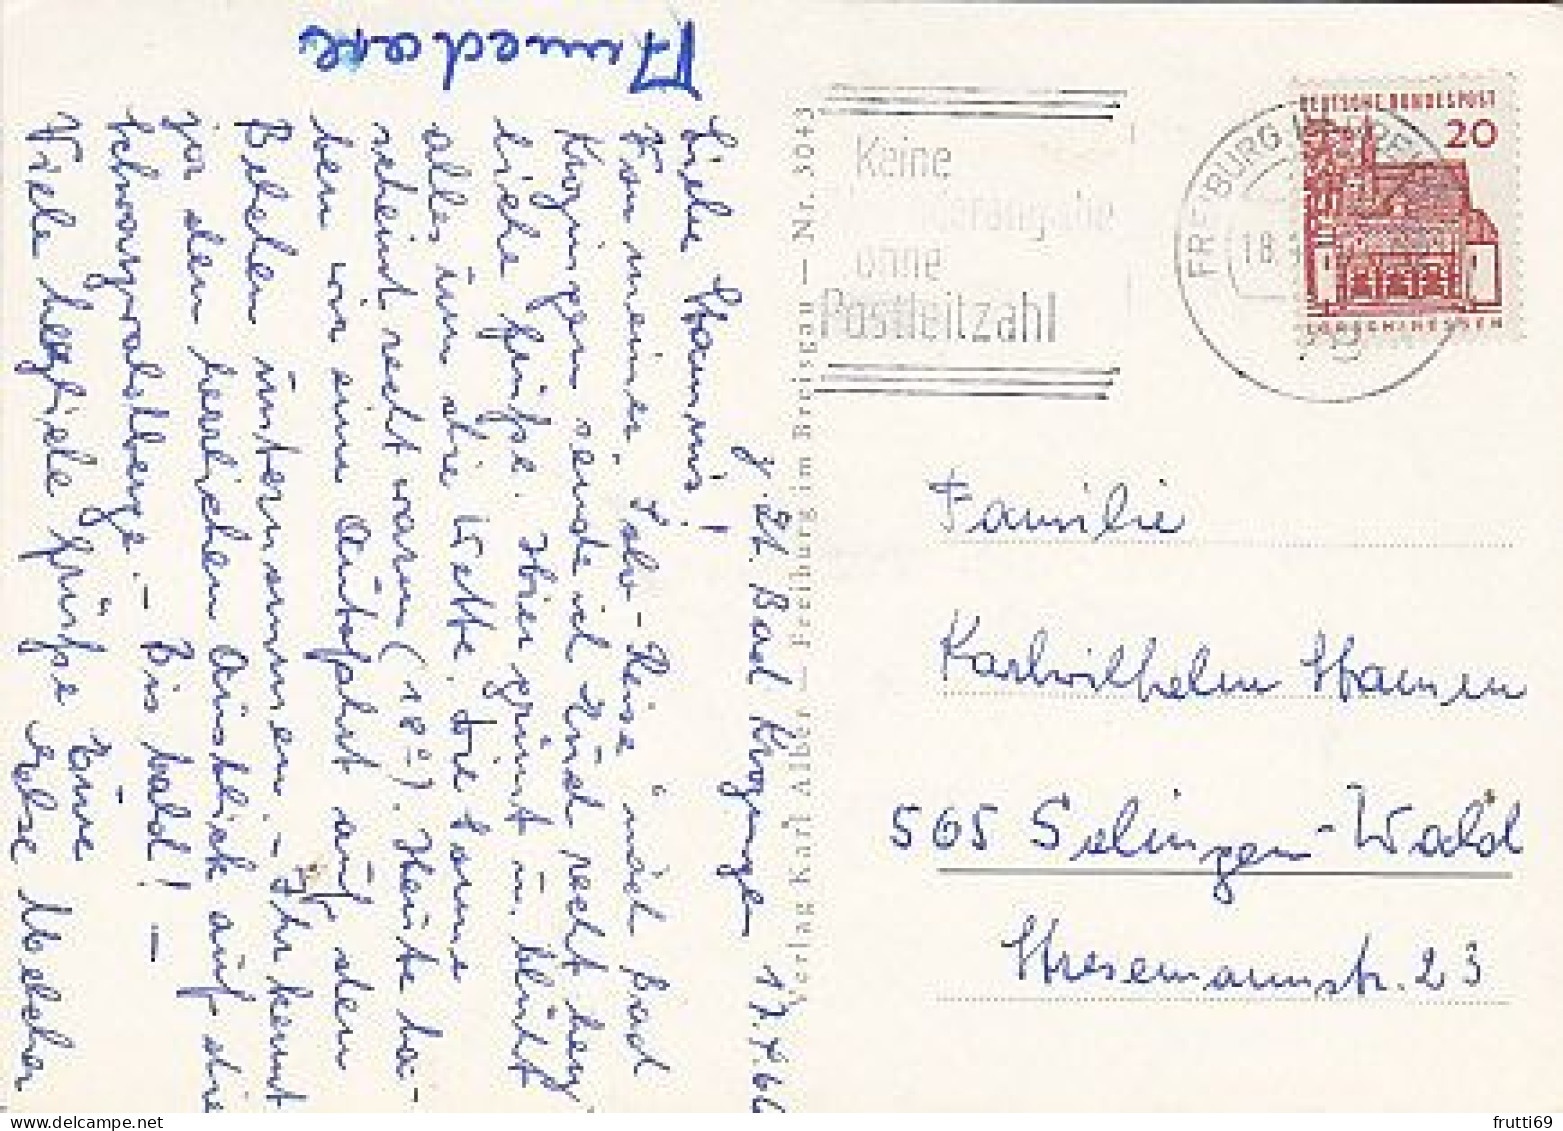 Annedore
z. Zt. Bad Krozingen 17.4.66
Liebe Hammis!
Von meiner "Solo-Reise" nach Bad
Krozingen sende ich Euch recht herz-
liche Grüße. Hier grünt u. blüht
alles um die Wette. Die Sonne
scheint recht warm (18°). Heute ha-
ben wir eine Autofahrt auf den
Belchen unternommen. – Ihr kennt
ja den herrlichen Ausblick auf die
Schwarzwaldberge. – Bis bald! –
Viele herzliche Grüße Eure
Verlag Karl Alber — Freiburg im Breisgau — Nr. 3043
Keine
ohne
Postleitzahl
FREIBURG
18.
DEUTSCHE BUNDESPOST
20
LORSCH/HESSEN
Familie
Karlwilhelm Hammen
565 Solingen-Wald
Stresemannstr. 23
frutti69